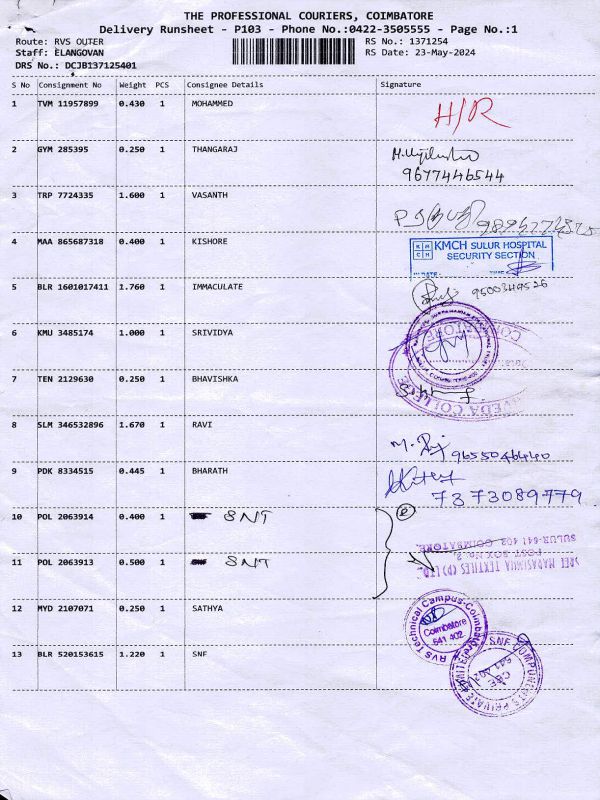 THE PROFESSIONAL COURIERS, COIMBATORE
Delivery Runsheet - P103 - Phone No.:0422-3505555 - Page No.:1
Route: RVS OUTER RS No.: 1371254
Staff: ELANGOVAN RS Date: 23-May-2024
DRS No.: DCJB137125401
S No Consignment No Weight PCS Consignee Details Signature
1 TVM 11957899 0.430 1 MOHAMMED H/R
2 GYM 285395 0.250 1 THANGARAJ
9677446544
3 TRP 7724335 1.600 1 VASANTH
4 MAA 865687318 0.400 1 KISHORE KMCH SULUR HOSPITAL
SECURITY SECTION
5 BLR 1601017411 1.760 1 IMMACULATE 9500349526
6 KMU 3485174 1.000 1 SRIVIDYA
7 TEN 2129630 0.250 1 BHAVISHKA
8 SLM 346532896 1.670 1 RAVI
9655046440
9 PDK 8334515 0.445 1 BHARATH
7373089779
10 POL 2063914 0.400 1 SNT
SULUR-641 402, COIMBATORE.
POST BOX No. 2,
11 POL 2063913 0.500 1 SNT
TEXTILES (P) LTD.
12 MYD 2107071 0.250 1 SATHYA
RVS Technical Campus-Coimbatore
Coimbatore
641 402
13 BLR 520153615 1.220 1 SNF
SNF COMPONENTS PRIVATE LIMITED
CBE
641 402